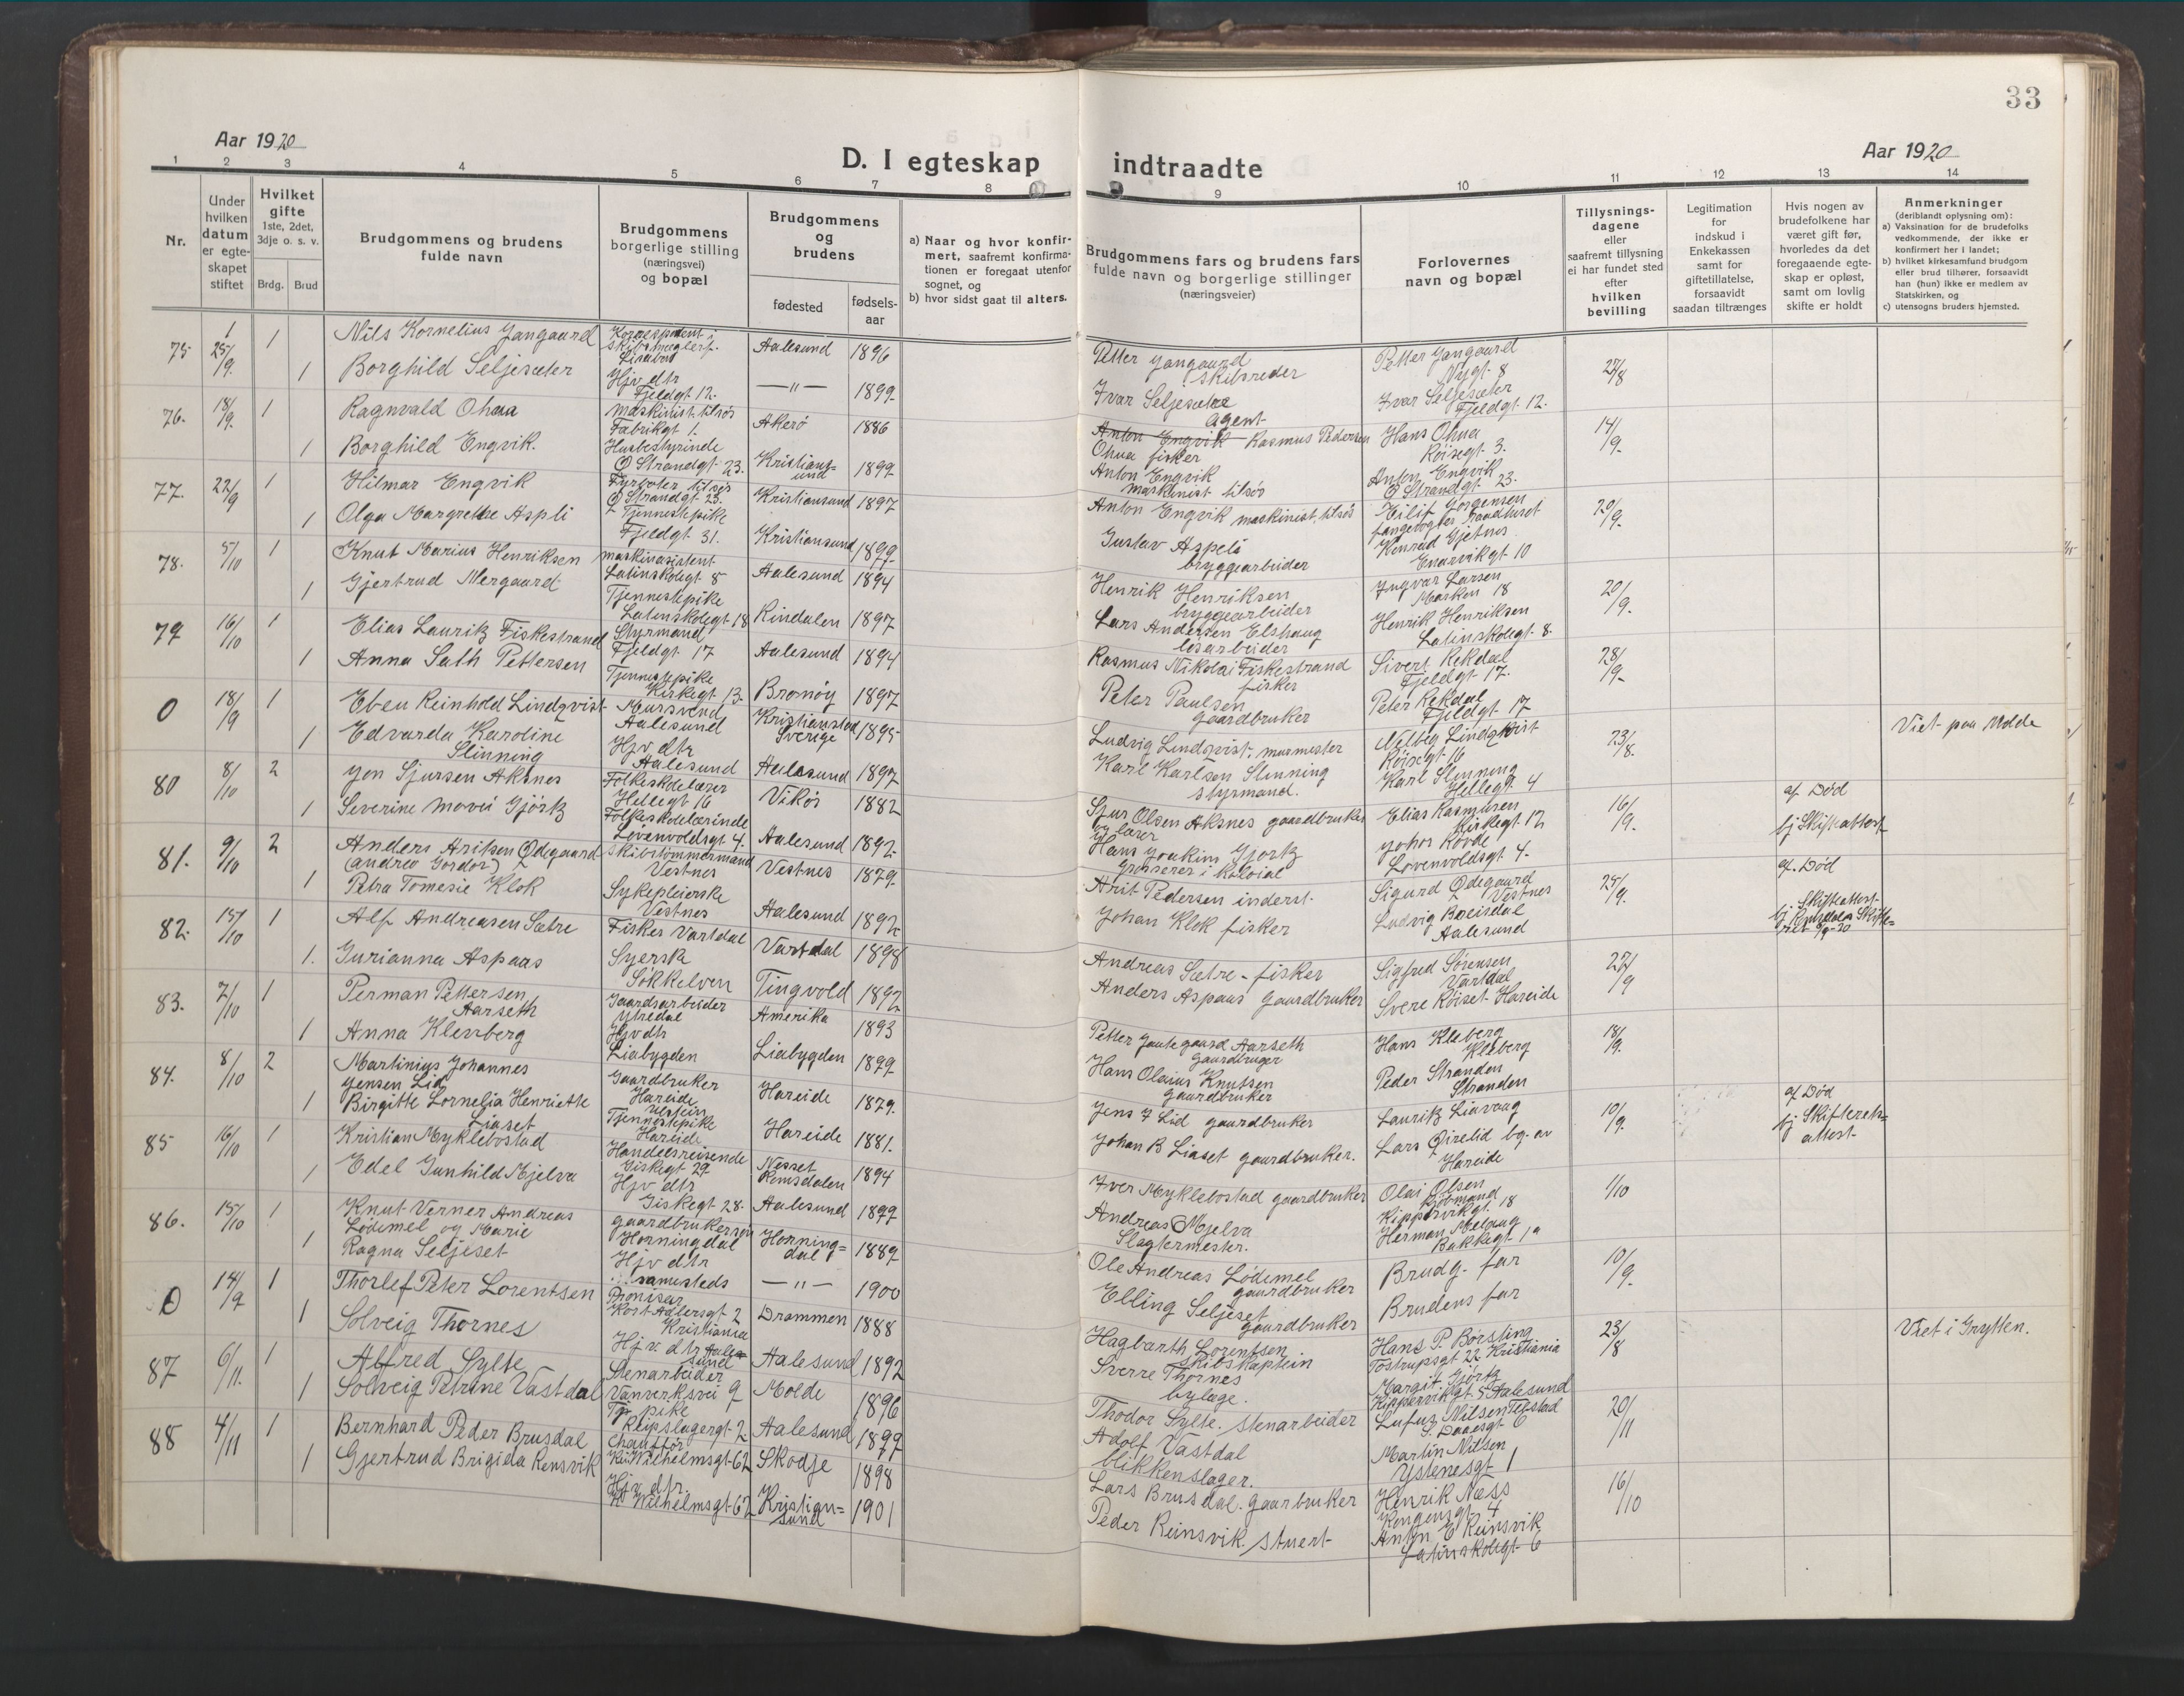 33
Aar 1920
D. I egteskap indtraadte
Aar 1920
1 2 3 4 5 6 7 8 9 10 11 12 13 14
Nr.
Under hvilken datum er egte-skapet stiftet
Hvilket gifte 1ste, 2det, 3dje o. s. v.
Brdg. Brud
Brudgommens og brudens fulde navn
Brudgommens borgerlige stilling (næringsvei) og bopæl
Brudgommens og brudens
fødested
fødsels-aar
a) Naar og hvor konfir-
mert, saafremt konfirma-
tionen er foregaat utenfor
sognet, og
b) hvor sidst gaat til alters.
Brudgommens fars og brudens fars
fulde navn og borgerlige stillinger
(næringsveier)
Forlovernes
navn og bopæl
Tillysnings-
dagene
eller
saafremt tillysning
ei har fundet sted
efter
hvilken
bevilling
Legitimation
for
indskud i
Enkekassen
samt for
giftetillatelse,
forsaavidt
saadan tiltrænges
Hvis nogen av
brudefolkene har
været gift før,
hvorledes da det
foregaaende egte-
skap er opløst,
samt om lovlig
skifte er holdt
Anmerkninger
(deriblandt oplysning om):
a) Vaksination for de brudefolks
vedkommende, der ikke er
konfirmert her i landet;
b) hvilket kirkesamfund brudgom
eller brud tilhører, forsaavidt
han (hun) ikke er medlem av
Statskirken, og
c) utensogns bruders hjemsted.
75 25/9 1 Nils Kornelius Jangaard Aalesund 1896
Petter Jangaard Skibsreder
Petter Jangaard Nygt 8
27/8
1 Borghild Seljesæter Hjv dtr Fjeldgt 12. —"— 1899
Ivar Seljesæter Agent
Ivar Seljesæter Fjeldgt 12.
76. 18/9. 1 Ragnvald Ohua Maskinist tilsös Fabrikgt 1. Akerö 1886
Anton Engvik Rasmus Pedersen Ohua fisker
Hans Ohua Röisegt 3.
14/9.
1 Borghild Engvik. Husbestyrinde Ø Strandgt 23. Kristiansund 1899
Anton Engvik maskinist tilsös
Anton Engvik Ø Strandgt 23.
77. 22/9 1 Hilmar Engvik Fyrböter tilsös Ø Strandgt 23. Kristiansund 1897
Anton Engvik maskinist, tilsös
Eilif Jörgensen Raadhuset
20/9.
1 Olga Margrethe Aspli Tjennestepike Fjeldgt 31. Kristiansund 1899
Gustav Aspli bryggearbeider
Konrad Gjetnes
78. 5/10 1 Knut Marius Henriksen Latinskolegt 8 Aalesund 1894
Henrik Henriksen bryggearbeider
Ingvar Larsen Marken 18
20/9.
1 Gjertrud Mergaard Tjennestepike Latinskolegt 18 Rindalen 1897
Lars Andersen Elshaug lösarbeider
Henrik Henriksen Latinskolegt 8.
79 16/10 1 Elias Lauritz Fiskestrand Styrmand Fjeldgt 17 Aalesund 1894
Rasmus Nikolai Fiskestrand fisker
Sivert Rekdal Fjeldgt 17.
28/9
1 Anna Sath Pettersen Tjennestepike Kirkegt 13. Bremöy 1897
Peter Paulsen gaardbruker
Peter Rekdal Fjeldgt 17
0 18/9 1 Eben Reinhold Lindqvist Mursvend Aalesund Kristianstad Sverige 1895
Ludvig Lindqvist, murmester
Lindqvist Röisegt 16
23/8.
Viet paa Molde
1 Edvarda Karoline Slinning Hjv dtr Aalesund Aalesund 1897
Karl Karlsen Slinning styrmand.
Karl Slinning Hellegt 4
80 8/10 2 Jon Sjursen Aksnes Folkeskolelærer Hellegt 16 Vikör 1882
Sjur Olsen Aksnes gaardbruker og lærer
Elias Rasmussen Kirkegt 12
16/9.
a/ Död b/ Skifteattest
1 Severine Movii Gjörtz Folkeskolelærinde Lövenvoldsgt 4. Aalesund 1892
Hans Joakim Gjörtz Grosserer i kolonial
Johos Rovde Lövenvoldsgt 4.
81. 9/10 2 Anders Aritsen Ødegaard (andrew Gordor) Skibstömmermand Vestnes Vestnes 1879
Arit Pedersen inderst.
Sigurd Ødegaard Vestnes
25/9.
a/. Död b/ Skifteattest
1 Petra Tomesie Klok Sykepleierske Vestnes Aalesund 1892
Johan Klok fisker
Ludvig Breisdal Aalesund
82. 15/10 1 Alf Andreasen Sætre Fisker Vartdal Vartdal 1898
Andreas Sætre - fisker
Sigfred Sörensen Vartdal
27/9
1. Gurianna Aspaas Syerske Sökkelven Tingvold 1892
Anders Aspaas Gaardbruker
Svere Röiset Hareide
83. 7/10 1 Perman Pettersen Aarseth Gaardsarbeider Ytredal Amerika 1893
Petter Gautegaard Aarseth Gaardbruger
Hans Kleberg Kleberg
18/9.
1 Anna Klevberg Hjv dtr Liabygden Liabygden 1899
Hans Olaius Knutsen gaardbruker
Peder Stranden Stranden
84. 8/10 2 Martinius Johannes Jensen Lid Gaardbruker Hareide Hareide 1879.
Jens J Lid gaardbruker
Lauritz Liavaag
10/9.
a/ Död b/ Skifteretsattest
1 Birgitte Cornelia Henriette Liaset Tjennestepike Hareide Hareide 1881.
Johan B Liaset gaardbruker.
Lars Överlid bg. av Hareide
85 16/10 1 Kristian Myklebostad Handelsreisende Giskegt 29 Nesset Romsdalen 1894
Iver Myklebostad gaardbruker
Olai Olsen Kippervikgt 18
1/10
1 Edel Gunhild Mjelva Hjv dtr Giskegt 28. Aalesund 1899
Andreas Mjelva Slagtermester.
Herman Melaug Bakkegt 1a
86. 15/10 1 Knut Verner Andreas Lödemel og Marie gaardbrukersön Horningdal Honningdal 1889
Ole Andreas Lödemel gaardbruker
Brudg. far
10/9.
1 Ragna Seljeset Hjv dtr samesteds —"— 1900
Elling Seljeset gaardbruker
Brudens far
0 14/9 1 Thorlef Peter Lorentsen Provisor Kort Adlersgt 2 Kristiania Drammen 1888
Hagbarth Lorentsen Skibskaptein
Hans P. Börsting Tostrupsgt 22 Kristiania
23/8
Viet i Grytten.
1 Solveig Thornes Hjv. dtr Aalesund Aalesund 1892
Sverre Thornes bylæge.
Margit Gjörtz Kippervikgt 5 Aalesund
87 6/11. 1 Alfred Sylte Stenarbeider Vanverksvei 9 Molde 1896
Thodor Sylte. Stenarbeider
Nilsen
20/11
1 Solveig Petrine Vastdal Tj. pike Reipslagergt 2 Aalesund 1899
Adolf Vastdal blikkenslager.
Martin Nilsen Ystenesgt 1
88 4/11 1 Bernhard Peder Brusdal Chaufför Kei Wilhelmsgt 62 Skodje 1898
Lars Brusdal. Gaarbruker
Henrik Næss Kongensgt 4
16/10
1 Gjertrud Brigida Rensvik Hjv dtr. K Wilhelmsgt 62 Kristiansund 1901
Peder Reinsvik. Stuert
Anton E Reinsvik Latinskolegt 6